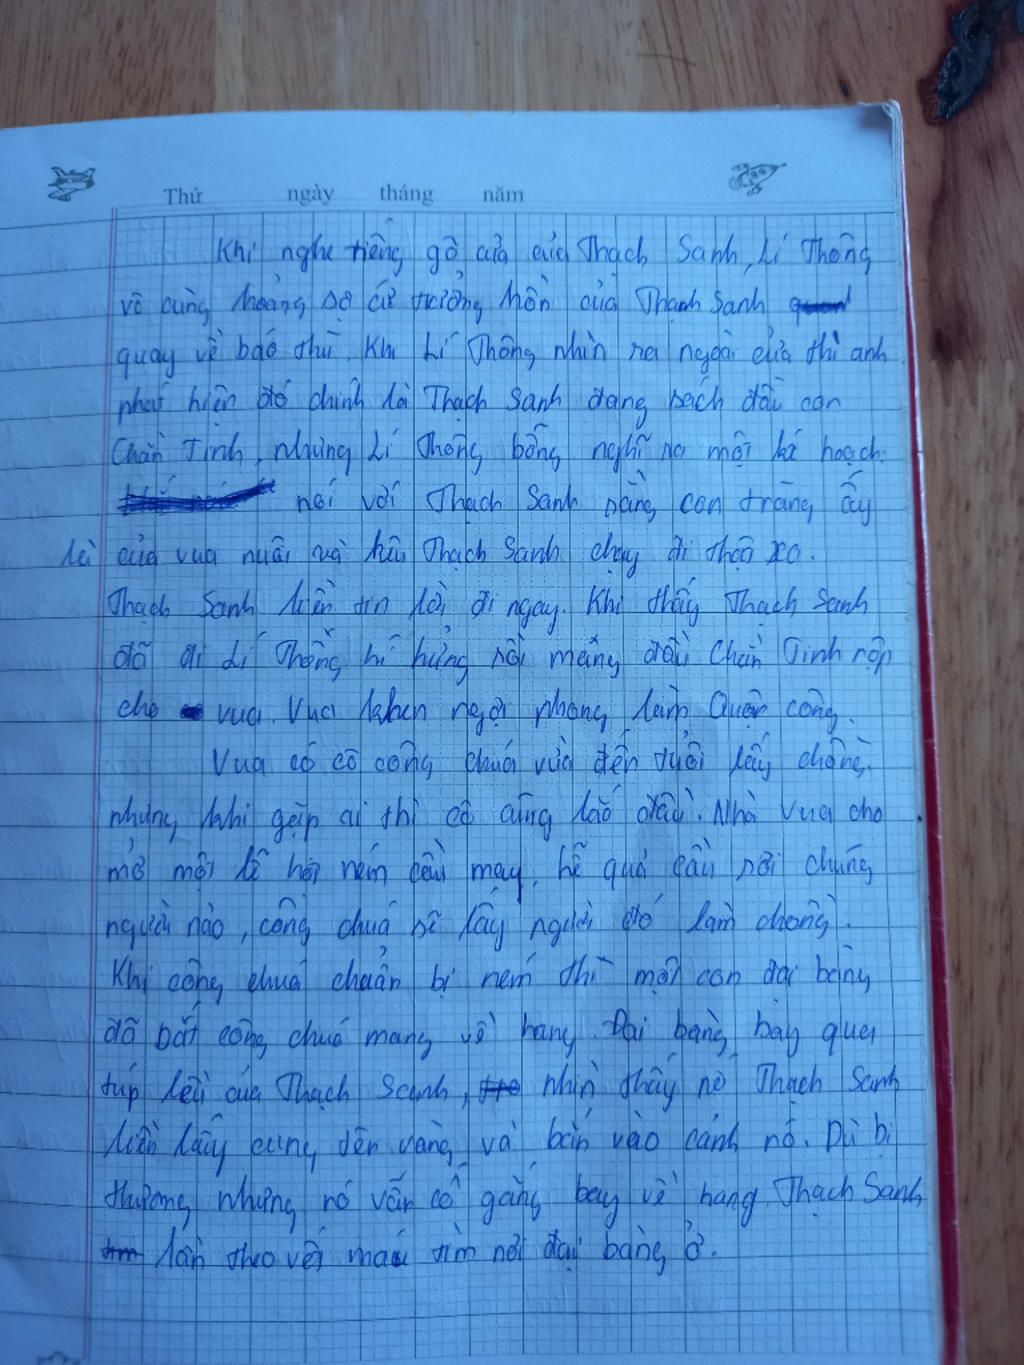 Thứ ngày tháng năm
Khi nghe tiếng gõ cửa của Thạch Sanh, Lí Thông
vô cùng hoảng sợ cứ tưởng hồn của Thạch Sanh
quay về báo thù. Khi Lí Thông nhìn ra ngoài cửa thì anh
phát hiện đó chính là Thạch Sanh đang xách đầu con
Chằn Tinh, nhưng Lí Thông bỗng nghĩ ra một kế hoạch:
nói với Thạch Sanh rằng con trăng ấy
là của vua nuôi và kêu Thạch Sanh chạy đi thật xa.
Thạch Sanh liền tin lời đi ngay. Khi thấy Thạch Sanh
đã đi Lí Thông hí hửng rồi mang đầu Chằn Tinh nộp
cho vua. Vua khen ngợi phong làm Quận công.
Vua có cô công chúa vừa đến tuổi lấy chồng,
nhưng khi gặp ai thì cô cũng lắc đầu. Nhà vua cho
mở một lễ hội ném cầu may, hễ quả cầu rơi chúng
người nào, công chúa sẽ lấy người đó làm chồng.
Khi công chúa chuẩn bị ném thì một con đại bàng
đã bắt công chúa mang về hang. Đại bàng bay qua
túp lều của Thạch Sanh, nhìn thấy nó Thạch Sanh
liền lấy cung tên vàng và bắn vào cánh nó. Dù bị
thương nhưng nó vẫn cố gắng bay về hang. Thạch Sanh
lần theo vết máu tìm nơi đại bàng ở.